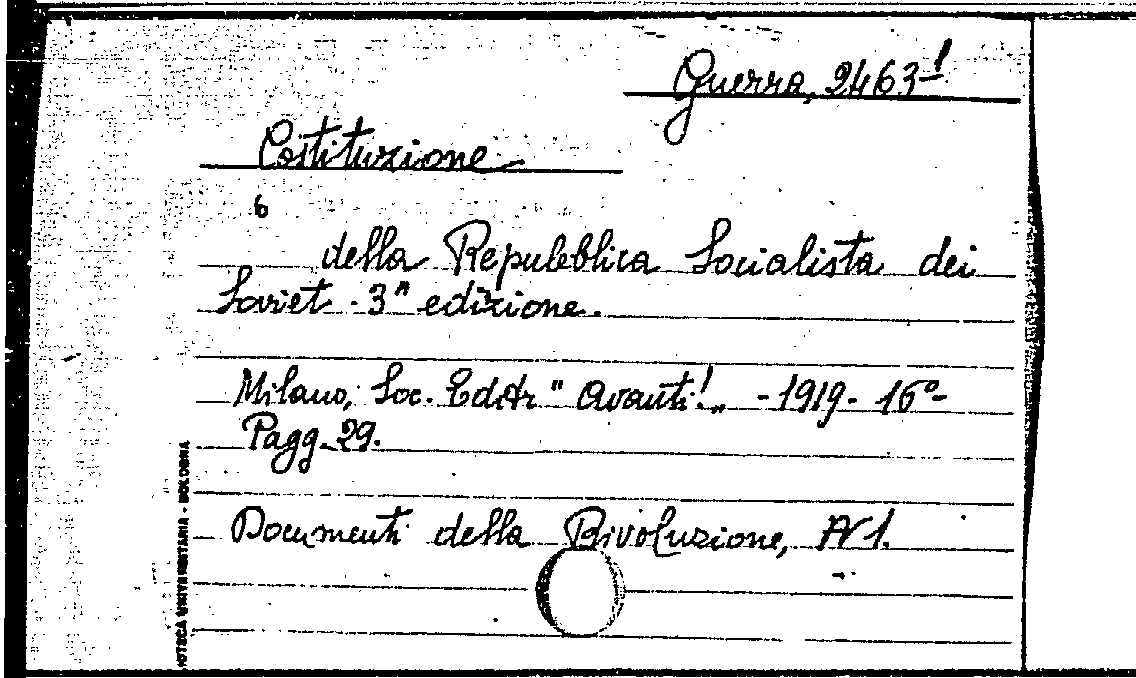 Guerra, 2463-1
Costituzione
6
della Repubblica Socialista dei
Soviet - 3ª edizione.
Milano, Soc. Editr " Avanti! „ - 1919 - 16° -
Pagg. 29.
Documenti della Rivoluzione, N 1.
OTECA UNIVERSITARIA - BOLOGNA